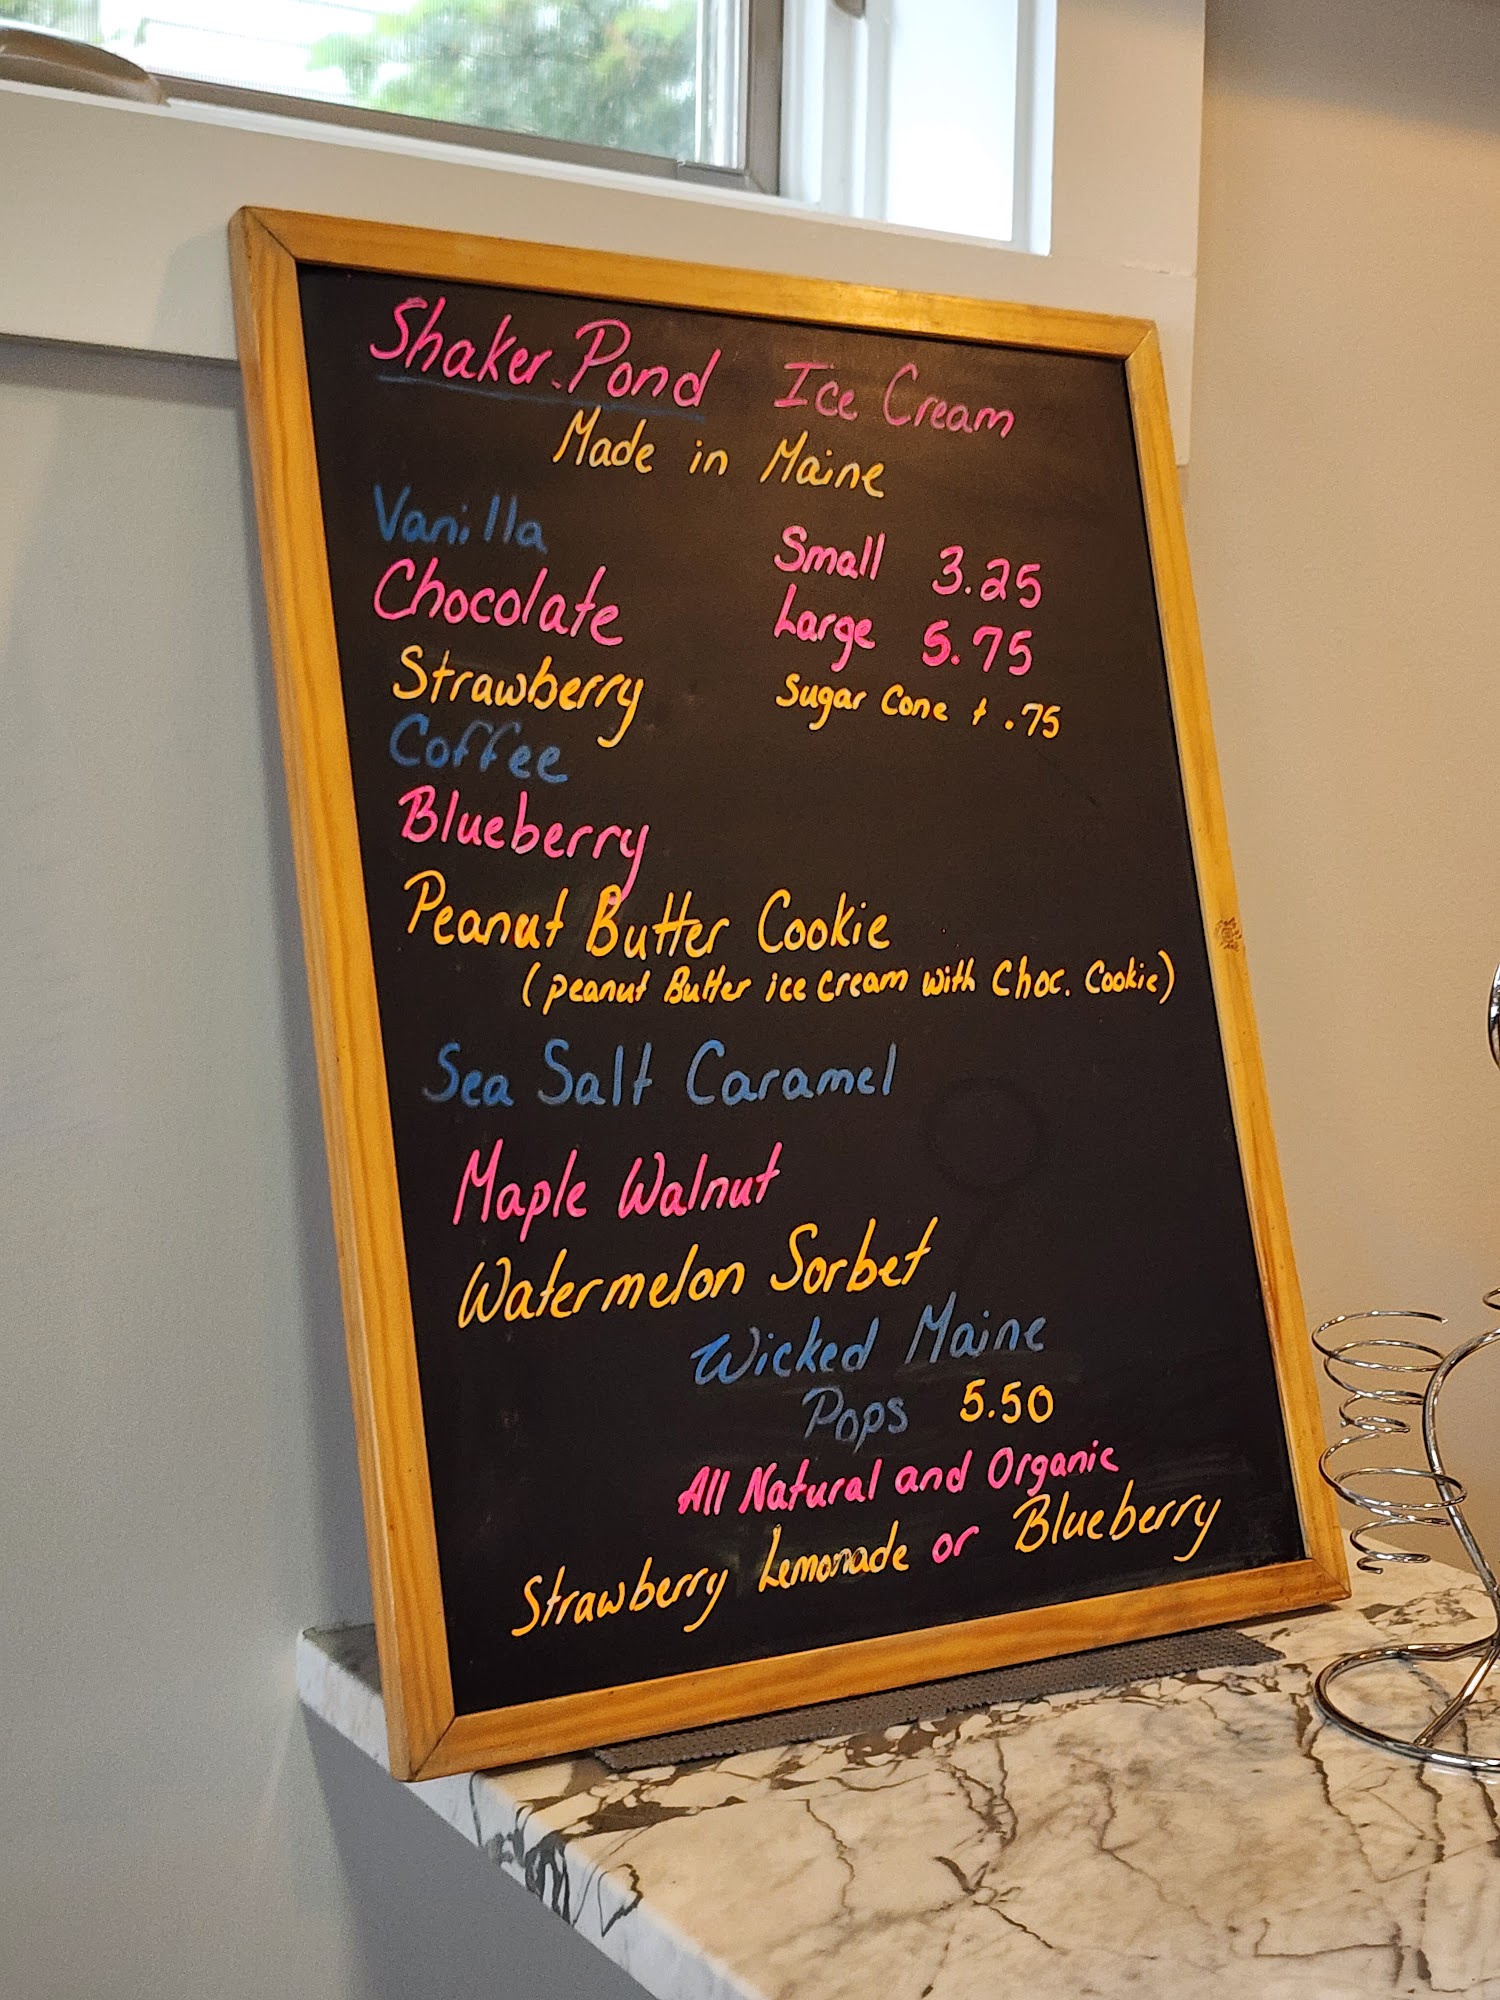 Shaker Pond Ice Cream
Made in Maine
Vanilla
Chocolate
Strawberry
Coffee
Blueberry
Small 3.25
Large 5.75
Sugar Cone + .75
Peanut Butter Cookie
(peanut Butter ice cream with Choc. Cookie)
Sea Salt Caramel
Maple Walnut
Watermelon Sorbet
Wicked Maine
Pops 5.50
All Natural and Organic
Strawberry Lemonade or Blueberry